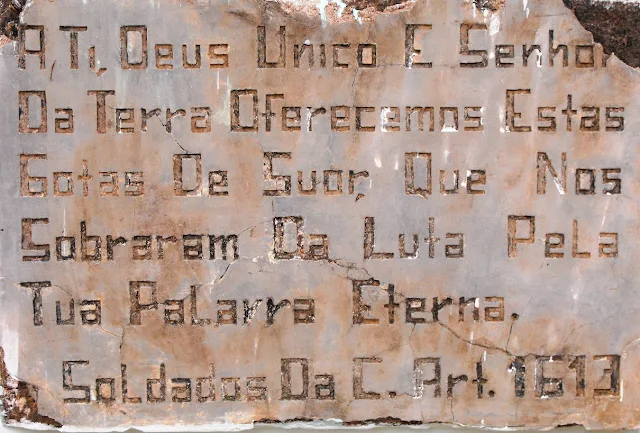 A Ti, Deus Unico E Senhor
Da Terra Oferecemos Estas
Gotas De Suor, Que Nos
Sobraram Da Luta Pela
Tua Palavra Eterna.
Soldados Da C. Art. 1613